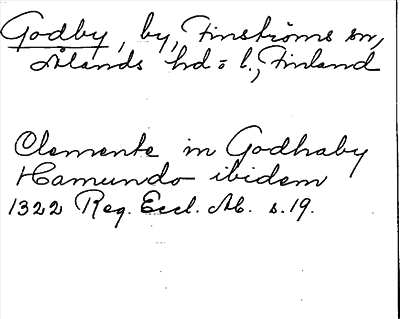 Godby, by, Finströms sn,
Ålands hd o l., Finland
Clemente in Godhaby
Hamundo ibidem
1322 Reg. Eccl. Ab. s. 19.